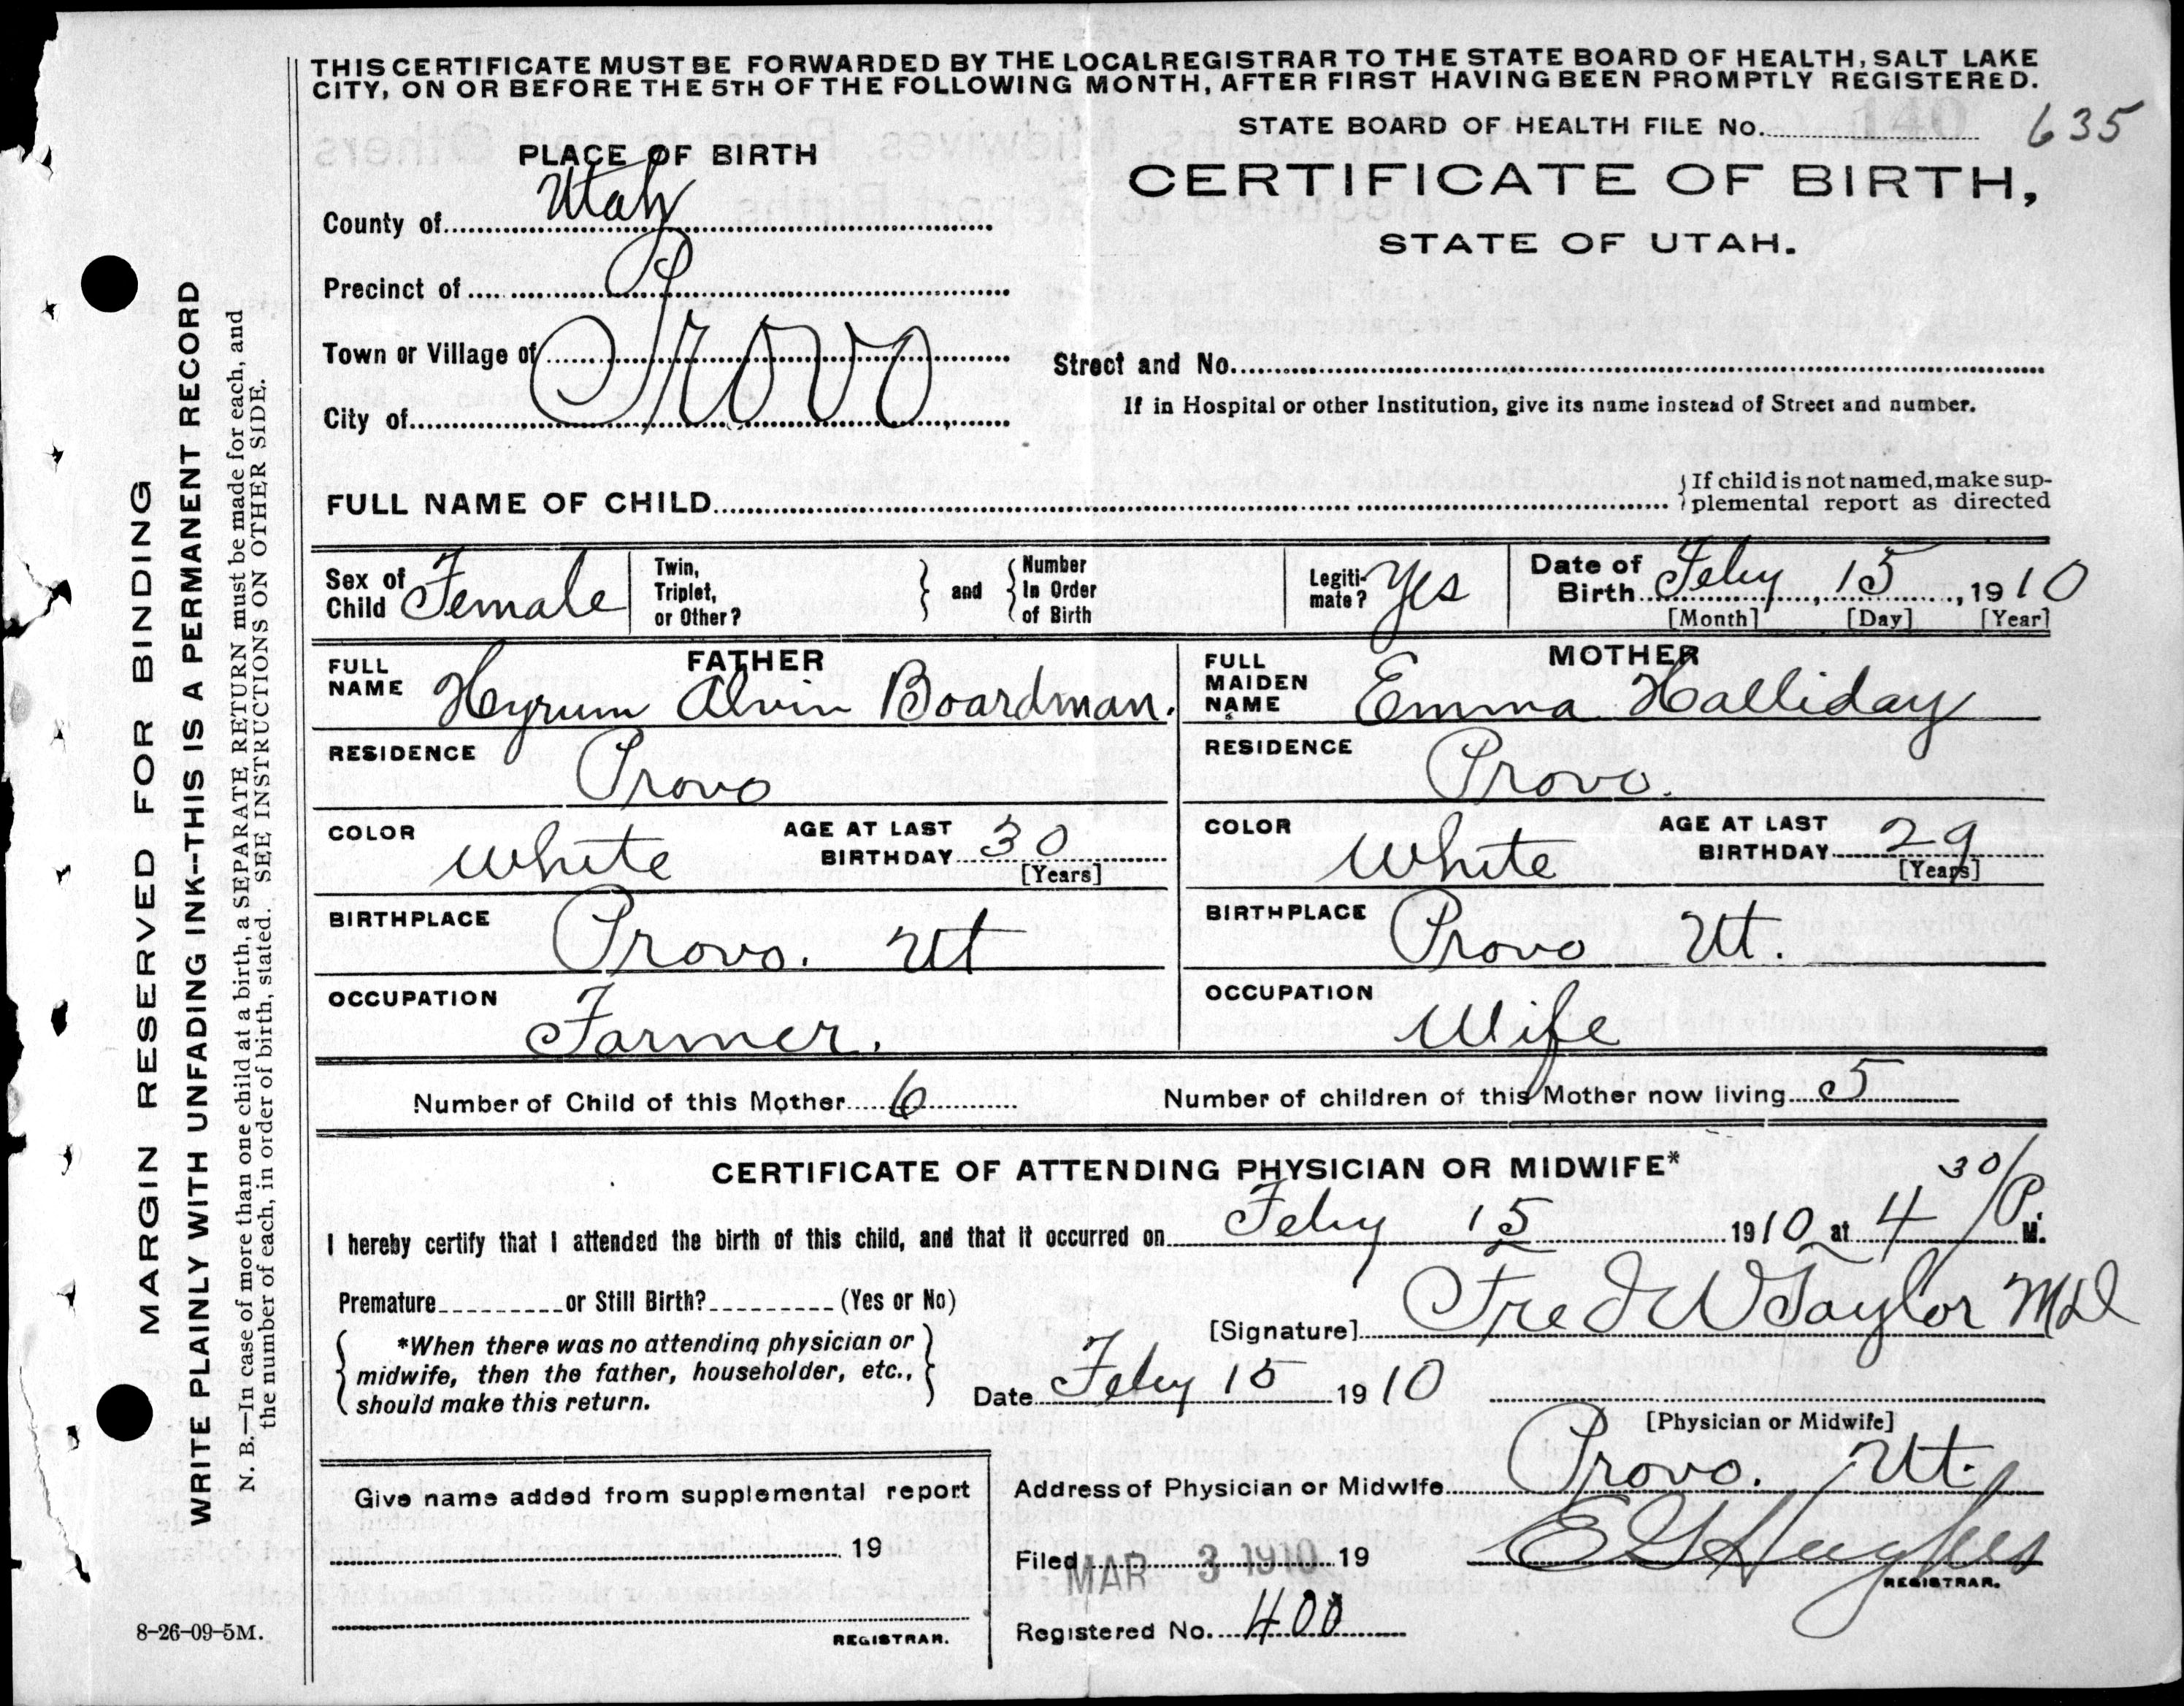 THIS CERTIFICATE MUST BE FORWARDED BY THE LOCAL REGISTRAR TO THE STATE BOARD OF HEALTH, SALT LAKE
CITY, ON OR BEFORE THE 5TH OF THE FOLLOWING MONTH, AFTER FIRST HAVING BEEN PROMPTLY REGISTERED.
STATE BOARD OF HEALTH FILE No. 635
PLACE OF BIRTH
CERTIFICATE OF BIRTH,
STATE OF UTAH.
County of Utah
Precinct of
Town or Village of
City of Provo
Street and No.
If in Hospital or other Institution, give its name instead of Street and number.
FULL NAME OF CHILD
If child is not named, make sup-
plemental report as directed
Sex of Child Female
Twin, Triplet, or Other?
and
Number In Order of Birth
Legiti-mate? Yes
Date of Birth Feby 15, 1910
[Month] [Day] [Year]
FATHER
FULL NAME Hyrum Alvin Boardman.
MOTHER
FULL MAIDEN NAME Emma Halliday
RESIDENCE Provo
RESIDENCE Provo.
COLOR White AGE AT LAST BIRTHDAY 30 [Years]
COLOR White AGE AT LAST BIRTHDAY 29 [Years]
BIRTHPLACE Provo. Ut
BIRTHPLACE Provo Ut.
OCCUPATION Farmer.
OCCUPATION Wife
Number of Child of this Mother 6 Number of children of this Mother now living 5
CERTIFICATE OF ATTENDING PHYSICIAN OR MIDWIFE*
I hereby certify that I attended the birth of this child, and that it occurred on Feby 15 1910 at 4 30/P. M.
Premature or Still Birth? (Yes or No)
[Signature] Fred W Taylor MD
*When there was no attending physician or
midwife, then the father, householder, etc.,
should make this return.
Date Feby 15 1910
[Physician or Midwife]
Give name added from supplemental report
19
REGISTRAR.
Address of Physician or Midwife Provo. Ut.
Filed MAR 3 1910 19 E G Hughes
REGISTRAR.
Registered No. 400
8-26-09-5M.
MARGIN RESERVED FOR BINDING
WRITE PLAINLY WITH UNFADING INK--THIS IS A PERMANENT RECORD
N. B.—In case of more than one child at a birth, a SEPARATE RETURN must be made for each, and
the number of each, in order of birth, stated. SEE INSTRUCTIONS ON OTHER SIDE.